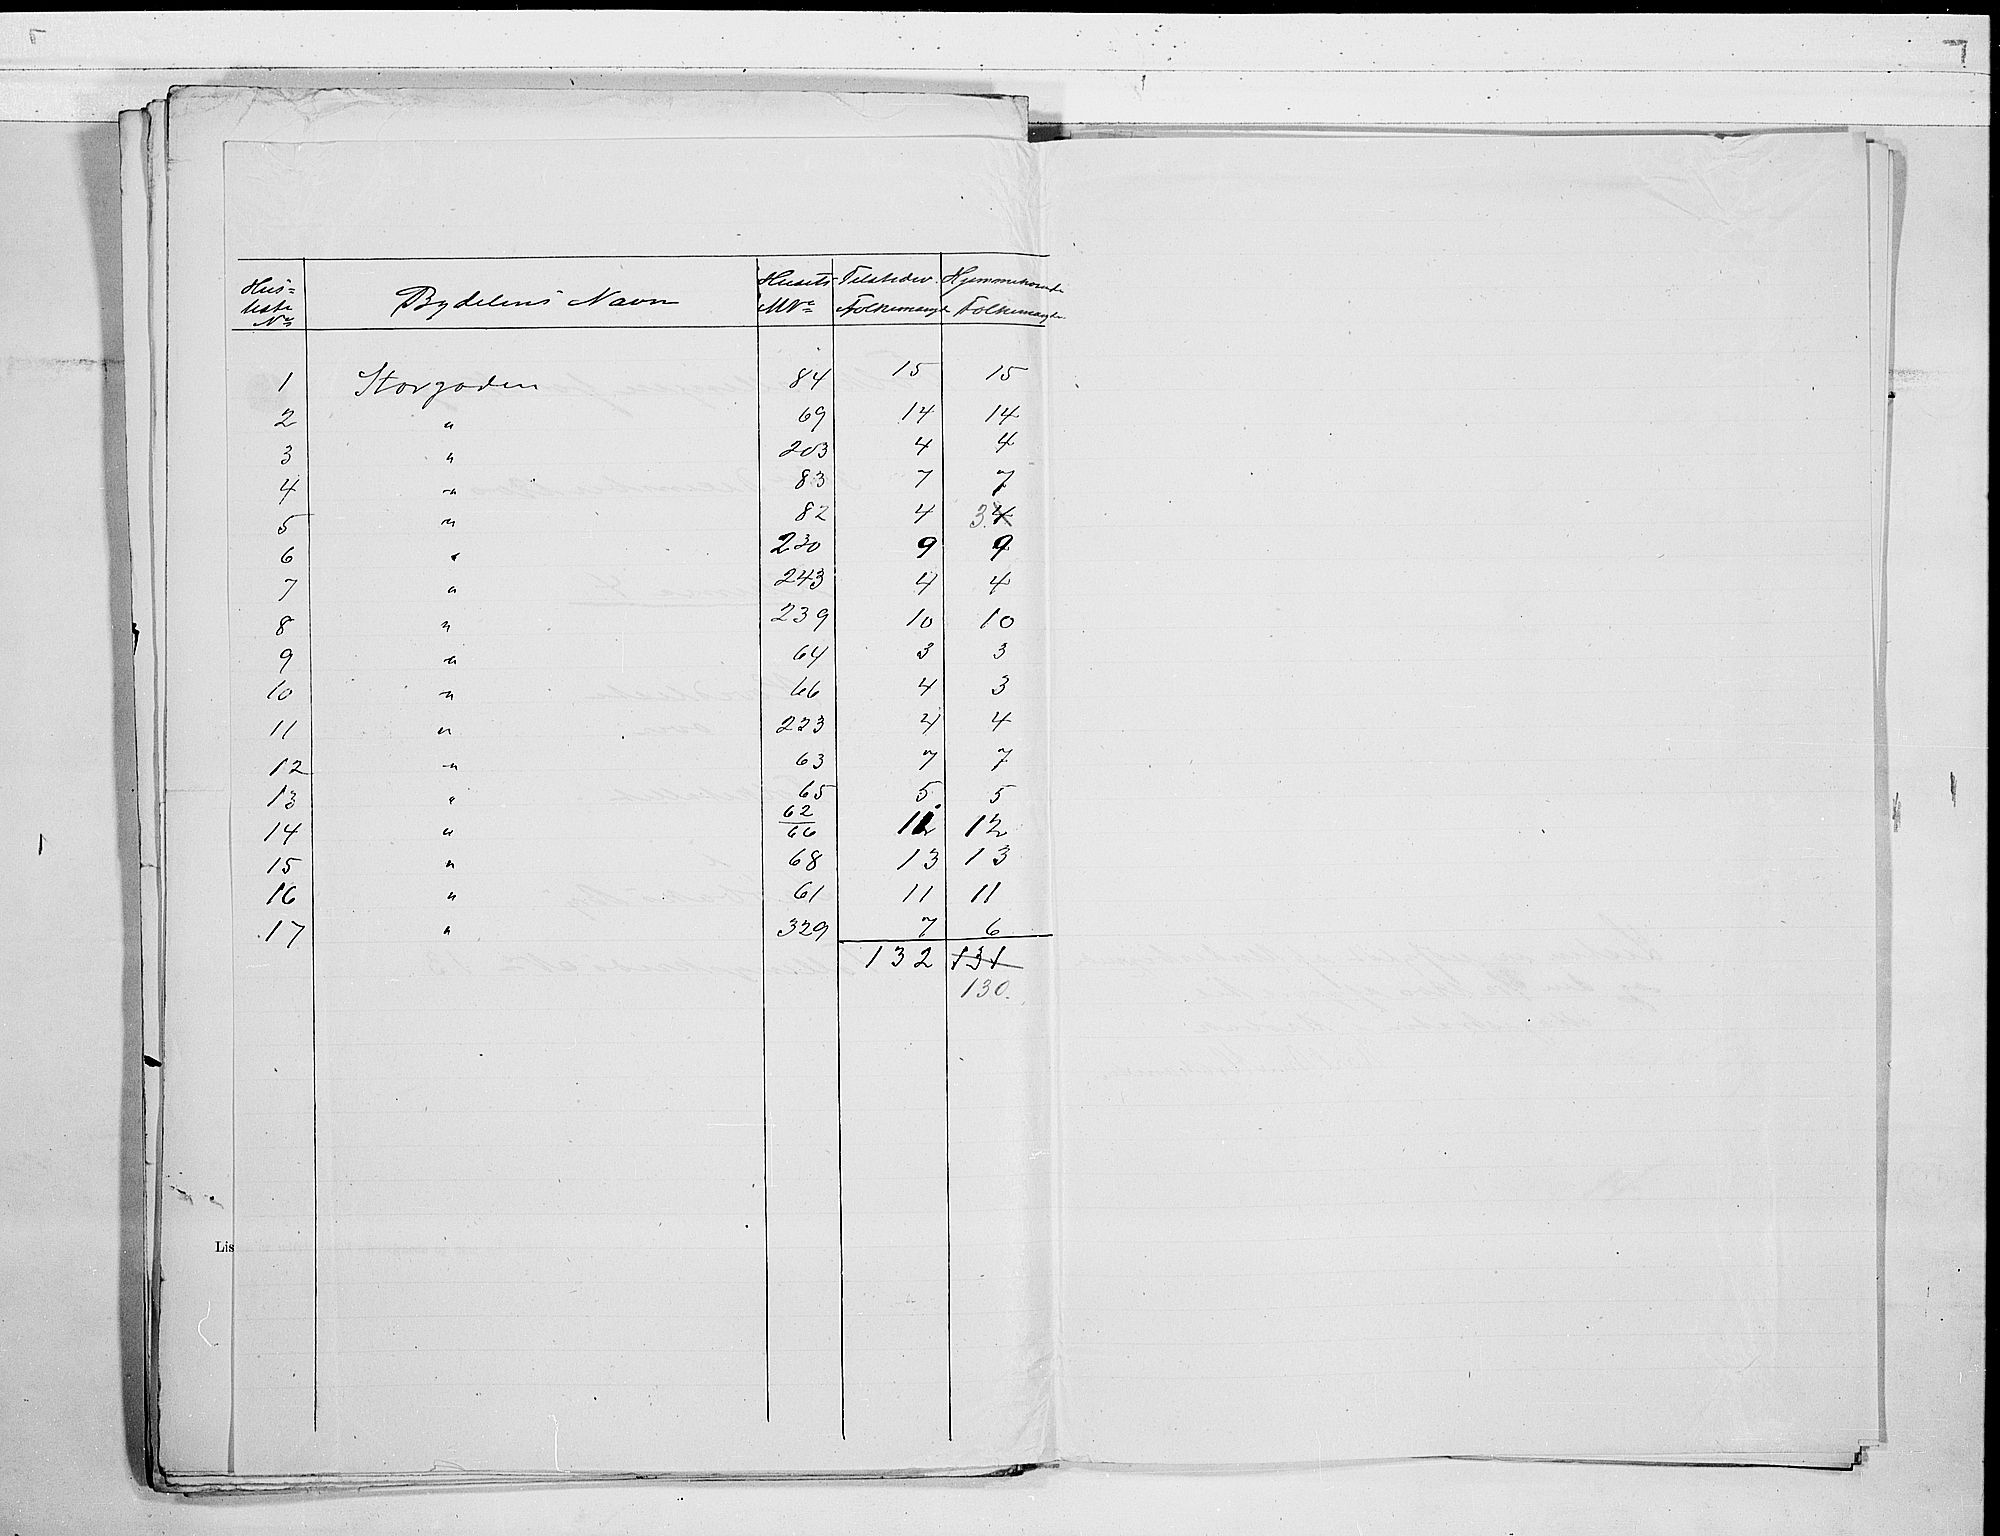 Hus= Bydelens Navn Husets Tilstedev. Hjemmehørende
liste MNo Folkemængde Folkemængde
No
1 Storgaden 84 15 15
2 " 69 14 14
3 " 203 4 4
4 " 83 7 7
5 " 82 4 3 4
6 " 230 9 9
7 " 243 4 4
8 " 239 10 10
9 " 64 3 3
10 " 66 4 3
11 " 223 4 4
12 " 63 7 7
13 " 65 5 5
14 " 62/66 12 12
15 " 68 13 13
16 " 61 11 11
17 " 329 7 6
132 131
130.
Lis